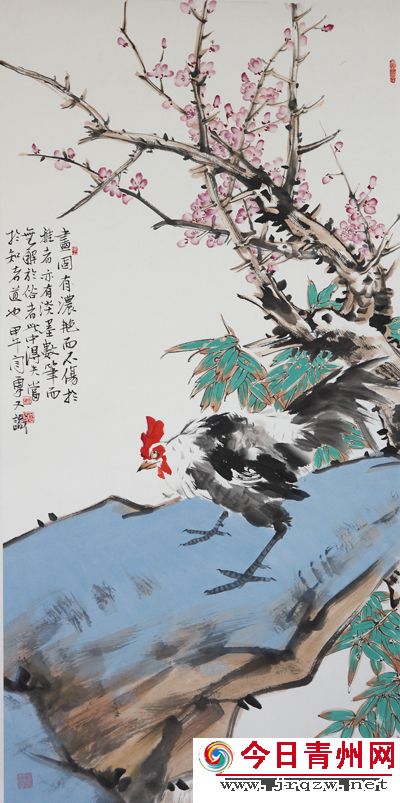 畫固有濃艷而不傷於
雅者亦有淡墨數筆而
无解於俗者此中得失當
於知者道也 甲午 勇又識
今日青州网
www.jrqzw.net